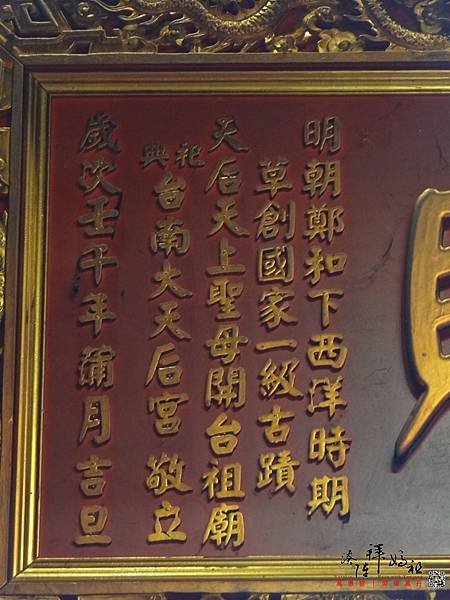 明朝鄭和下西洋時期
草創國家一級古蹟
天后天上聖母開台祖廟
祀興
台南大天后宮 敬立
歲次壬午年蒲月吉旦
湊陣拜媽祖